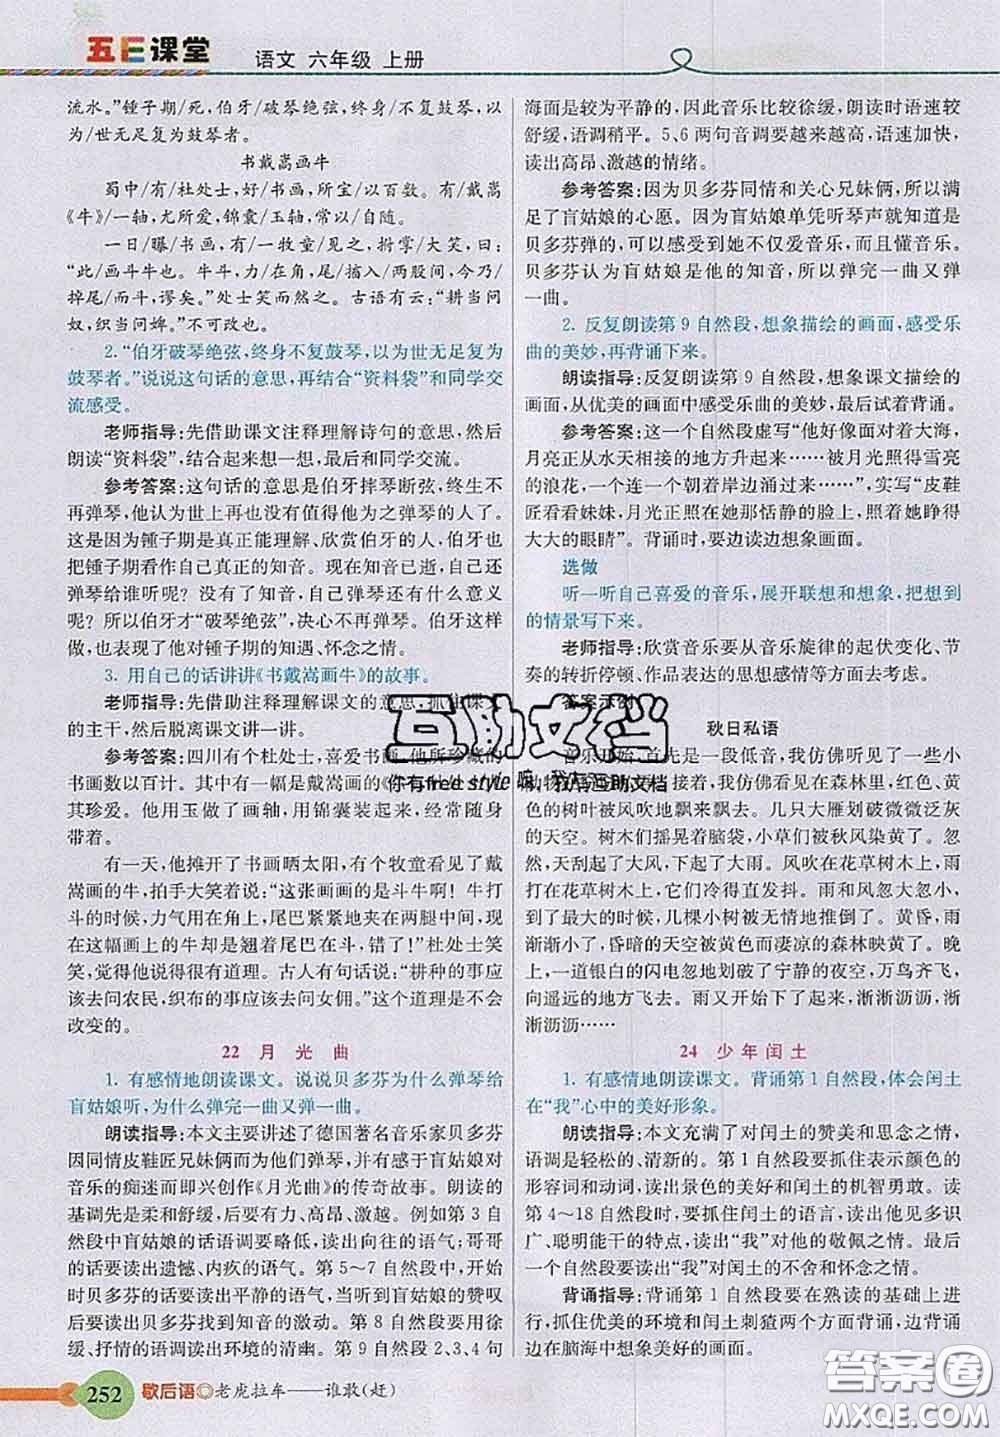 五E课堂
语文 六年级 上册
流水。”锺子期/死，伯牙/破琴绝弦，终身/不复鼓琴，以
为/世无足复为鼓琴者。
书戴嵩画牛
蜀中/有/杜处士，好/书画，所宝/以百数。有/戴嵩
《牛》/一轴，尤所爱，锦囊/玉轴，常以/自随。
一日/曝/书画，有/一牧童/见之，拊掌/大笑，曰：
“此/画斗牛也。牛斗，力/在角，尾/搐入/两股间，今乃/
掉尾/而斗，谬矣。”处士笑而然之。古语有云：“耕当问
奴，织当问婢。”不可改也。
2.“伯牙破琴绝弦，终身不复鼓琴，以为世无足复为
鼓琴者。”说说这句话的意思，再结合“资料袋”和同学交
流感受。
老师指导：先借助课文注释理解诗句的意思，然后
朗读“资料袋”，结合起来想一想，最后和同学交流。
参考答案：这句话的意思是伯牙摔琴断弦，终生不
再弹琴，他认为世上再也没有值得他为之弹琴的人了。
这是因为锺子期是真正能理解、欣赏伯牙的人，伯牙也
把锺子期看作自己真正的知音。现在知音已死，他再
弹琴给谁听呢？没有了知音，自己弹琴还有什么意义
呢？所以伯牙才“破琴绝弦”，决心不再弹琴。伯牙这样
做，也表现了他对锺子期的知遇、怀念之情。
3. 用自己的话讲讲《书戴嵩画牛》的故事。
老师指导：先借助注释理解课文的意思，抓住课文
的主干，然后脱离课文讲一讲。
参考答案：四川有个杜处士，喜爱书画，他所珍藏的
书画数以百计。其中有一幅是戴嵩画的
其珍爱。他用玉做了画轴，用锦囊装起来，经常随身
带着。
有一天，他摊开了书画晒太阳，有个牧童看见了戴
嵩画的牛，拍手大笑着说：“这张画画的是斗牛啊！牛打
斗的时候，力气用在角上，尾巴紧紧地夹在两腿中间，现
在这幅画上的牛却是翘着尾巴在斗，错了！”杜处士笑
笑，觉得他说得很有道理。古人有句话说：“耕种的事应
该去问农民，织布的事应该去问女佣。”这个道理是不会
改变的。
22 月 光 曲
1. 有感情地朗读课文。说说贝多芬为什么弹琴给
盲姑娘听，为什么弹完一曲又弹一曲。
朗读指导：本文主要讲述了德国著名音乐家贝多芬
因同情皮鞋匠兄妹俩而为他们弹琴，并有感于盲姑娘对
音乐的痴迷而即兴创作《月光曲》的传奇故事。朗读的
基调先是柔和舒缓，后要有力、高昂、激越。例如第 3 自
然段中盲姑娘的话语调要略低，读出向往的语气；哥哥
的话要读出遗憾、内疚的语气。第 5～7 自然段中，开
始时贝多芬的话要读出平静的语气，当听到盲姑娘的赞叹
后要读出贝多芬找到知音的激动。第 8 自然段要用徐
缓、抒情的语调读出环境的清幽。第 9 自然段 2、3、4 句
海面是较为平静的，因此音乐比较徐缓，朗读时语速较
舒缓，语调稍平。5、6 两句音调要越来越高，语速加快，
读出高昂、激越的情绪。
参考答案：因为贝多芬同情和关心兄妹俩，所以满
足了盲姑娘的心愿。因为盲姑娘单凭听琴声就知道是
贝多芬弹的，可以感受到她不仅爱音乐，而且懂音乐。
贝多芬认为盲姑娘是他的知音，所以弹完一曲又弹
一曲。
2. 反复朗读第 9 自然段，想象描绘的画面，感受乐
曲的美妙，再背诵下来。
朗读指导：反复朗读第 9 自然段，想象课文描绘的
画面，从优美的画面中感受乐曲的美妙，最后试着背诵。
参考答案：这一个自然段虚写“他好像面对着大海，
月亮正从水天相接的地方升起来……被月光照得雪亮
的浪花，一个连一个朝着岸边涌过来……”，实写“皮鞋
匠看看妹妹，月光正照在她那恬静的脸上，照着她睁得
大大的眼睛”。背诵时，要边读边想象画面。
选做
听一听自己喜爱的音乐，展开联想和想象，把想到
的情景写下来。
老师指导：欣赏音乐要从音乐旋律的起伏变化、节
奏的转折停顿、作品表达的思想感情等方面去考虑。
答案示例：
秋日私语
音乐开始，首先是一段低音，我仿佛听见了一些小
接着，我仿佛看见在森林里，红色、黄色
的树叶被风吹地飘来飘去。几只大雁划破了微微泛灰
的天空。树木们摇晃着脑袋，小草们被秋风染黄了。忽
然，天刮起了大风，下起了大雨。风吹在花草树木上，雨
打在花草树木上，它们冷得直发抖。过了一会儿，雨
越来越大，几棵小树被无情地推倒了。黄昏，雨
渐渐小了，昏暗的天空被黄色而凄凉的森林映黄了。晚
上，一道银白的闪电忽地划破了宁静的夜空，万鸟齐飞，
向遥远的地方飞去。雨又开始下了起来，淅淅沥沥，淅
淅沥沥……
24 少年闰土
1. 有感情地朗读课文。背诵第 1 自然段，体会闰土
在“我”心中的美好形象。
朗读指导：本文充满了对闰土的赞美和思念之情，
语调是轻松的、清新的。第 1 自然段要抓住表示颜色的
形容词和动词，读出景色的美好和闰土的机智勇敢。读
第 4～18 自然段时，要抓住闰土的语言，读出他见多识
广、聪明能干的特点，读出“我”对他的敬佩之情。最后
一个自然段要读出“我”对闰土的不舍和怀念之情。
背诵指导：背诵第 1 自然段要在熟读的基础上进
行，抓住优美的环境和闰土刺猹两个方面背诵，边背诵
边在脑海中想象画面。
互助文档
你有free style 嘛，我有互助文档
252 歇后语◎老虎拉车——谁敢（赶）
答案圈
MXQE.COM